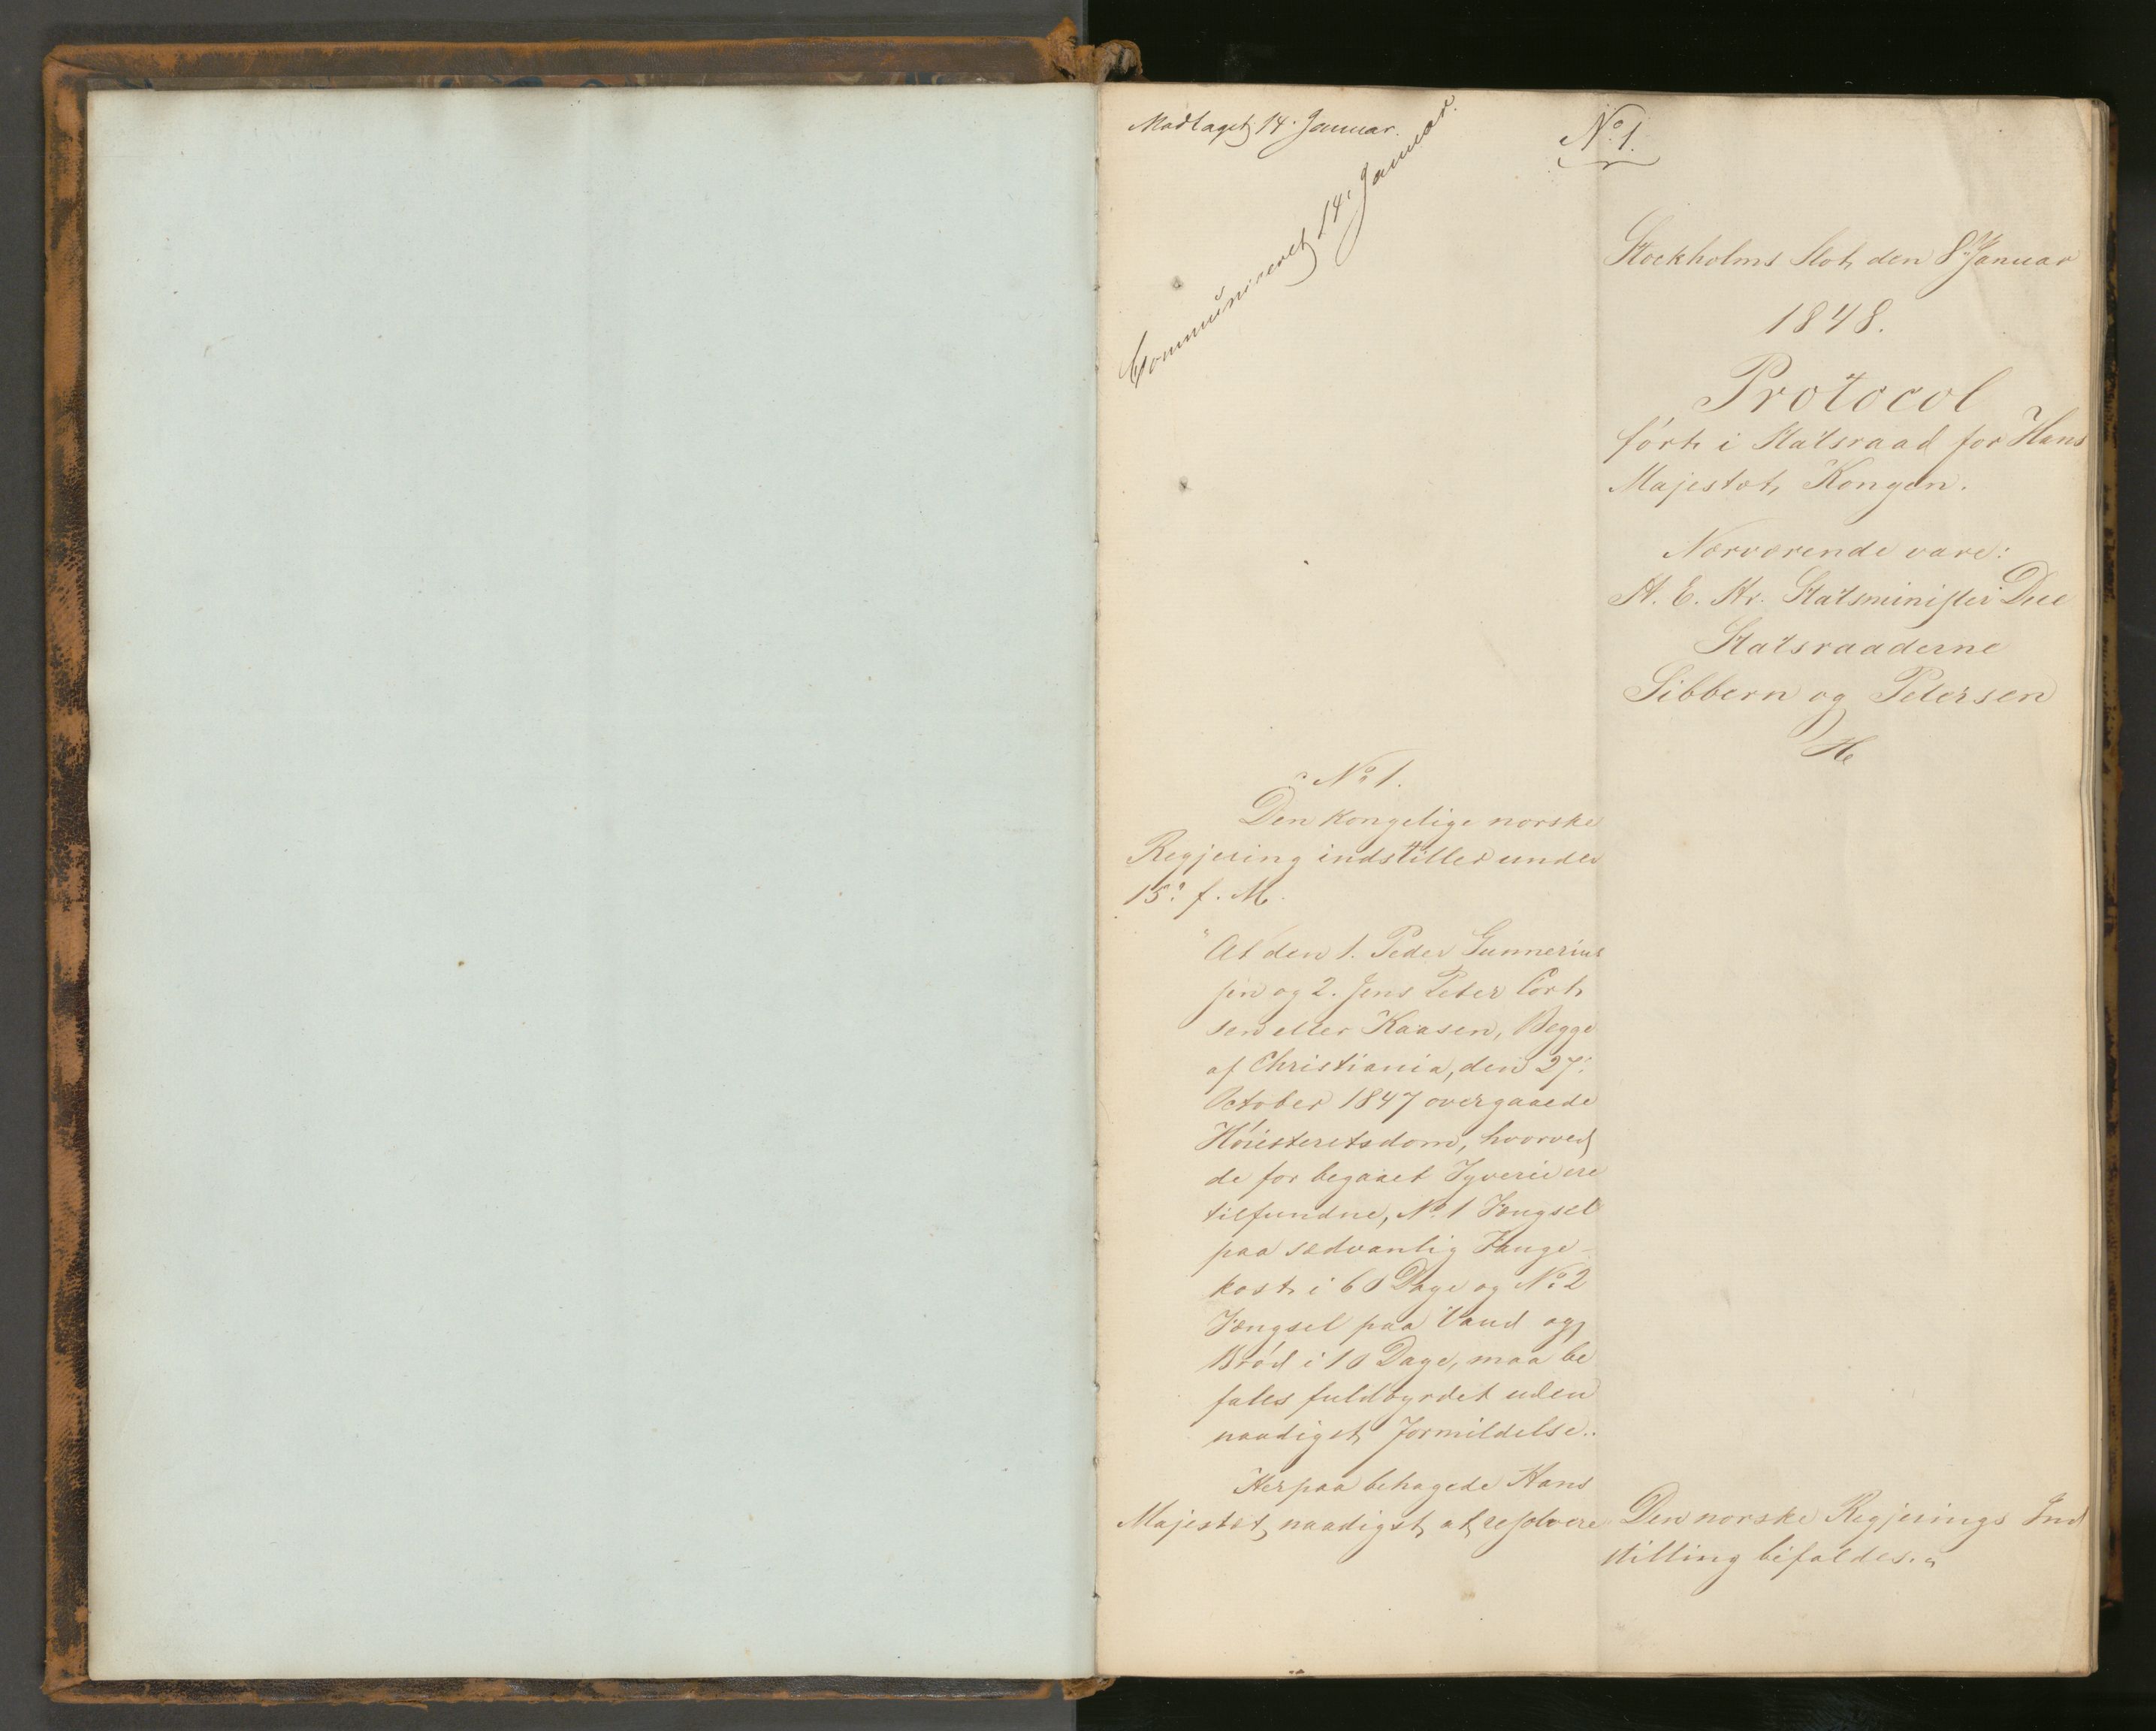 Modtaget 14. Januar.
Communiceret 14. Januar.
No. 1.
Stockholms Slot den 8de Januar
1848.
Protocol
ført i Statsraad for Hans
Majestæt Kongen.
Nærværende vare:
H. E. Hr. Statsminister Due
Statsraaderne
Sibbern og Petersen
No 1.
Den kongelige norske
Regjering indstiller under
15. f. M.
"At den 1. Peder Gunnerius
sen og 2. Jens Peter Cort
sen eller Kaasen, Begge
af Christiania, den 27.
October 1847 overgaaede
Høiesteretsdom, hvorved
de for begaaet Tyverie ere
tilfundne, No. 1 Fængsel
paa sædvanlig Fange-
kost i 60 Dage og No. 2
Fængsel paa Vand og
Brød i 10 Dage, maa be
fales fuldbyrdet uden
naadigst Formildelse.
Herpaa behagede Hans
Majestæt naadigst at resolvere
Den norske Regjerings Ind
stilling bifaldes."